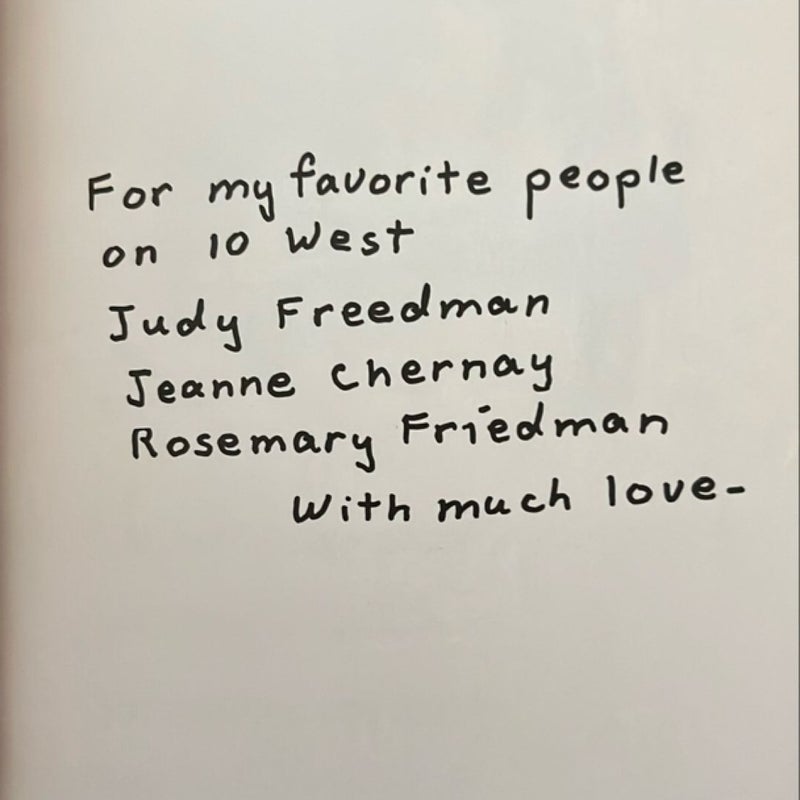 For my favorite people
on 10 West
Judy Freedman
Jeanne Chernay
Rosemary Friedman
With much love-